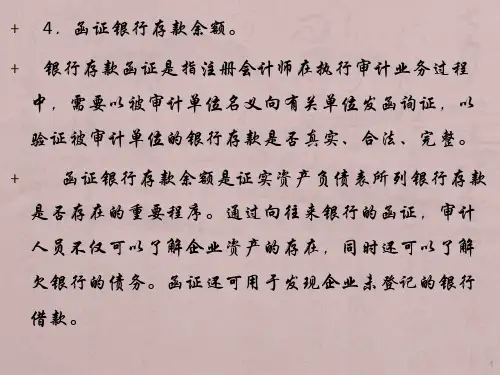 + 4．函证银行存款余额。
+ 银行存款函证是指注册会计师在执行审计业务过程
中，需要以被审计单位名义向有关单位发函询证，以
验证被审计单位的银行存款是否真实、合法、完整。
+ 函证银行存款余额是证实资产负债表所列银行存款
是否存在的重要程序。通过向往来银行的函证，审计
人员不仅可以了解企业资产的存在，同时还可以了解
欠银行的债务。函证还可用于发现企业未登记的银行
借款。